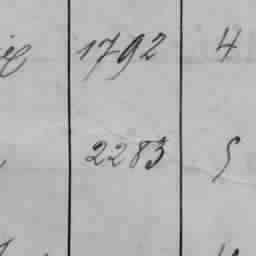 1792 4
2283 5